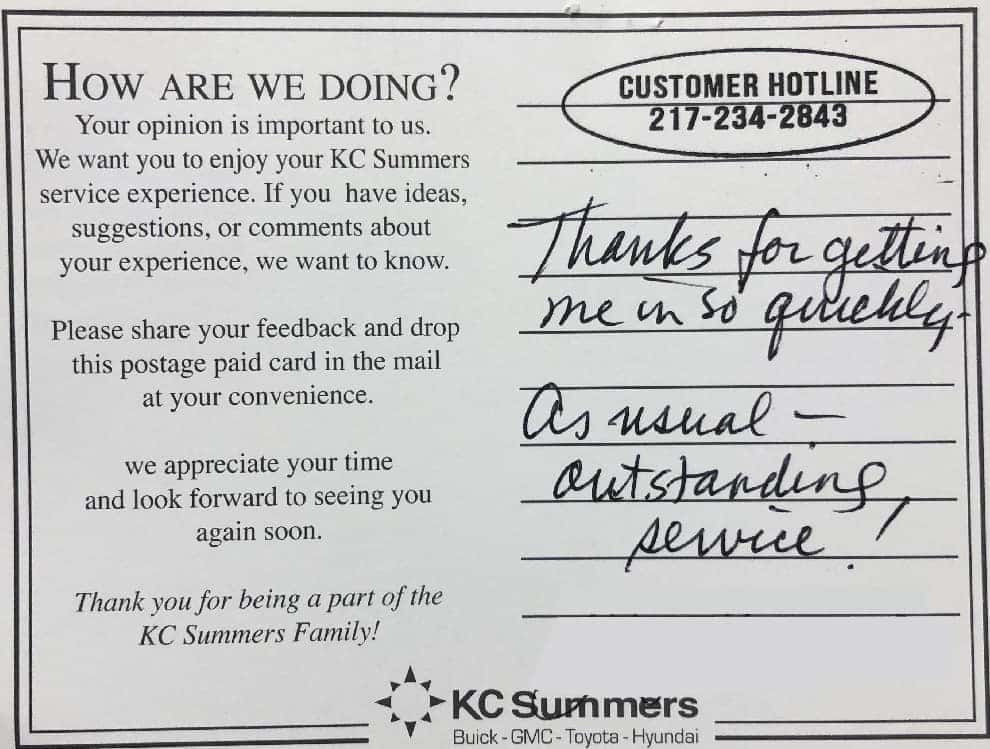 HOW ARE WE DOING?
Your opinion is important to us.
We want you to enjoy your KC Summers
service experience. If you have ideas,
suggestions, or comments about
your experience, we want to know.
Please share your feedback and drop
this postage paid card in the mail
at your convenience.
we appreciate your time
and look forward to seeing you
again soon.
Thank you for being a part of the
KC Summers Family!
CUSTOMER HOTLINE
217-234-2843
Thanks for getting
me in so quickly.
As usual —
outstanding
service!
KC Summers
Buick - GMC - Toyota - Hyundai